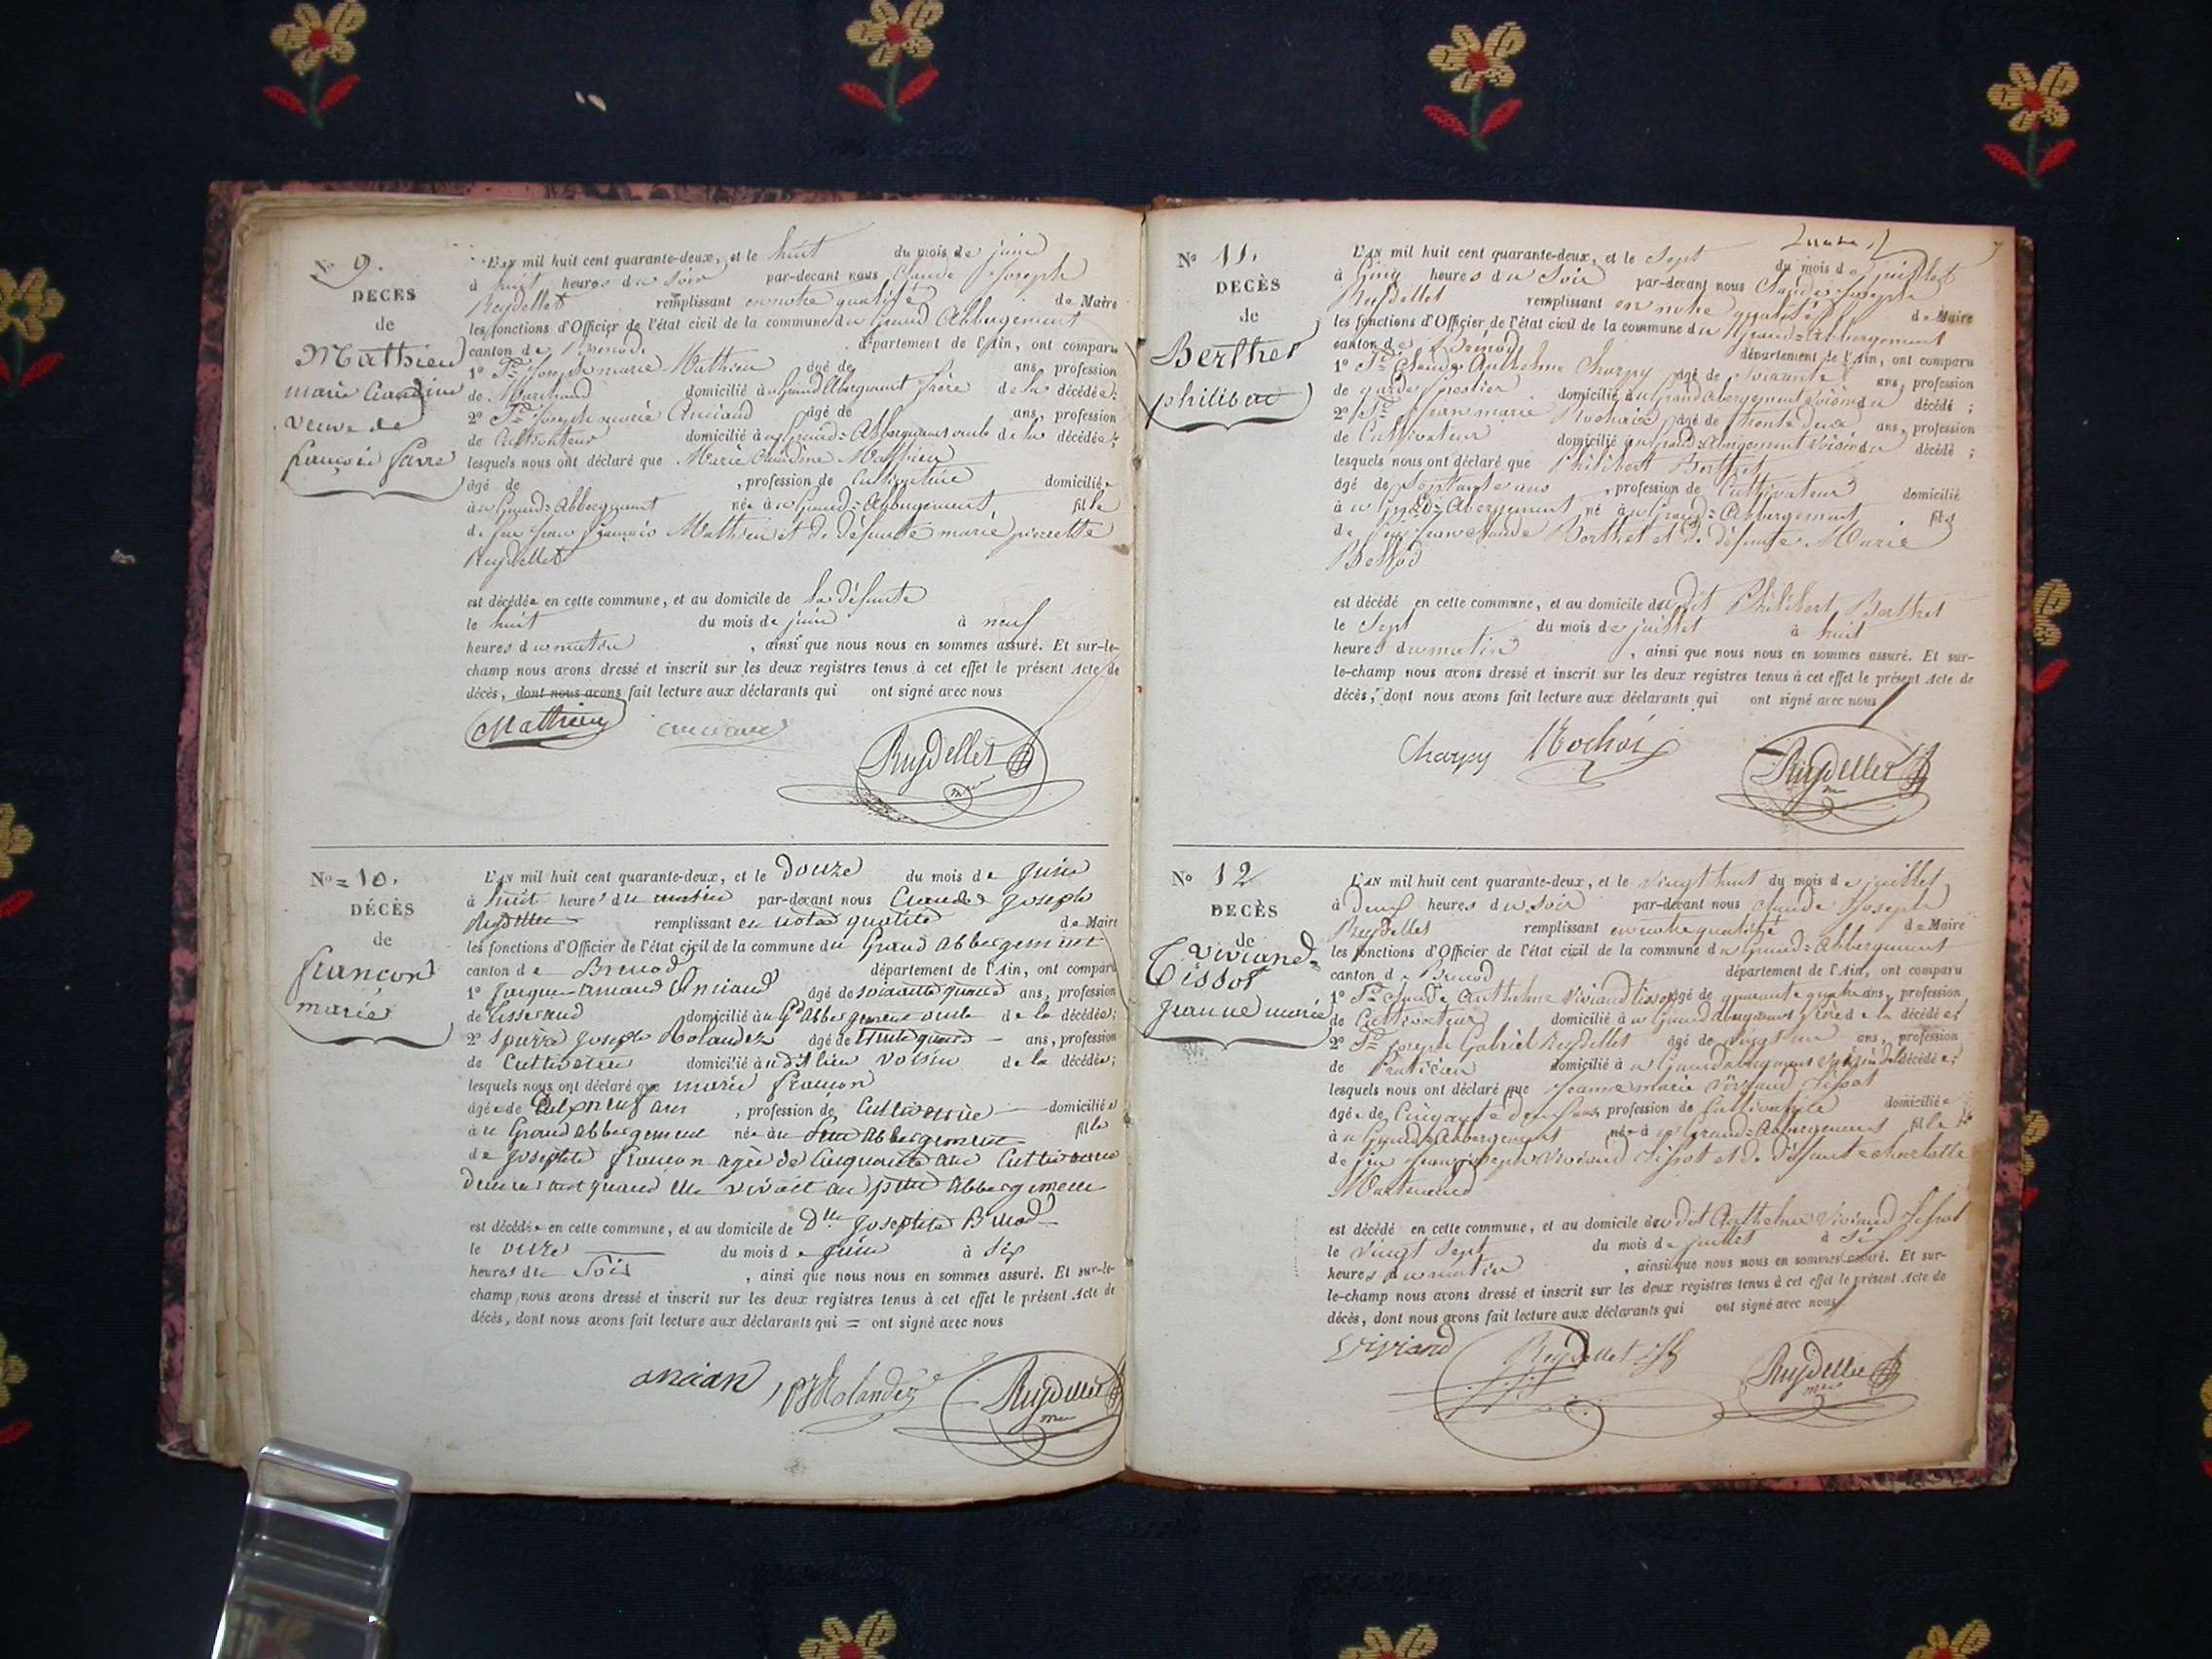 No 9.
DECES
de
Mathieu
marie Claudine
veuve de
françois favre
L'AN mil huit cent quarante-deux, et le huit du mois de juin
à huit heures du soir par-devant nous Claude Joseph
Reydellet remplissant en notre qualité de Maire
les fonctions d'Officier de l'état civil de la commune du Grand Abbergement
canton de Brenod département de l'Ain, ont comparu
1º Sr Joseph marie Mathieu âgé de ans, profession
de Marchand domicilié au Grand Abergement frère de la décédée;
2º Sr Joseph marie Anciand âgé de ans, profession
de Cultivateur domicilié au Grand=Abbergement oncle de la décédée;
lesquels nous ont déclaré que Marie Claudine Mathieu
âgé de , profession de Cultivatrice domiciliée
au Grand=Abbergement née au Grand=Abbergement fille
de feu Jean françois Mathieu et de défunte marie pierrette
Reydellet
est décédée en cette commune, et au domicile de la défunte
le huit du mois de juin à neuf
heures du matin , ainsi que nous nous en sommes assuré. Et sur-le-
champ nous avons dressé et inscrit sur les deux registres tenus à cet effet le présent Acte de
décès, dont nous avons fait lecture aux déclarants qui ont signé avec nous
Mathieu anciand Reydellet
No = 10.
DÉCÈS
de
francon
marie
L'AN mil huit cent quarante-deux, et le douze du mois de juin
à huit heures du matin par-devant nous Claude joseph
Reydellet remplissant en notre qualité de Maire
les fonctions d'Officier de l'état civil de la commune du Grand abbergement
canton de Brenod département de l'Ain, ont comparu
1º anciand âgé de ans, profession
de tisserand domicilié au Gd abbergement oncle de la décédée;
2º Spierre joseph Rolandez âgé de ans, profession
de Cultivateur domicilié audit lieu voisin de la décédée;
lesquels nous ont déclaré que marie francon
âgée de ans , profession de Cultivatrice domiciliée
au Grand abbergement née au abbergement fille
de josephte francon agée de Cinquante ans Cultivatrice
demeurant quand elle vivait au petit abbergement
est décédée en cette commune, et au domicile de Dlle josephte Brenod
le onze du mois de juin à six
heures du soir , ainsi que nous nous en sommes assuré. Et sur-le-
champ nous avons dressé et inscrit sur les deux registres tenus à cet effet le présent Acte de
décès, dont nous avons fait lecture aux déclarants qui = ont signé avec nous
ancian pJRolandez Reydellet
No 11.
DECÈS
de
Berthet
philibert
L'AN mil huit cent quarante-deux, et le sept du mois de juillet
à Cinq heures du soir par-devant nous Claude Joseph
Reydellet remplissant en notre qualité de Maire
les fonctions d'Officier de l'état civil de la commune du Grand=Abbergement
canton de Brenod département de l'Ain, ont comparu
1º Sr Claude Anthelme Charpy âgé de soixante ans, profession
de garde forestier domicilié au Grand Abergement voisin du décédé;
2º Sr Jean marie Rochaix âgé de trente deux ans, profession
de Cultivateur domicilié au Grand=Abergement voisin du décédé;
lesquels nous ont déclaré que Philibert Berthet
âgé de septante ans , profession de Cultivateur domicilié
à u Grand=Abergement né au Grand=Abbergement fils
de feu Jean Claude Berthet et de défunte Marie
est décédé en cette commune, et au domicile dudit Philibert Berthet
le sept du mois de juillet à huit
heures du matin , ainsi que nous nous en sommes assuré. Et sur-
le-champ nous avons dressé et inscrit sur les deux registres tenus à cet effet le présent Acte de
décès, dont nous avons fait lecture aux déclarants qui ont signé avec nous
Charpy Rochaix Reydellet
No 12
DECÈS
de
Viviand=
Tissot
jeanne marie
L'AN mil huit cent quarante-deux, et le vingt huit du mois de juillet
à deux heures du soir par-devant nous Claude Joseph
Reydellet remplissant en notre qualité de Maire
les fonctions d'Officier de l'état civil de la commune du Grand=Abbergement
canton de Brenod département de l'Ain, ont comparu
1º Sr Claude Anthelme Viviand tissot âgé de quarante quatre ans, profession
de Cultivateur domicilié au Grand abergement frère de la décédée;
2º Sr Joseph Gabriel Reydellet âgé de vingt un ans, profession
de Praticien domicilié au Grand abergement voisin de la décédée;
lesquels nous ont déclaré que Jeanne marie Viviand Tissot
âgée de Cinquante deux ans, profession de Cultivatrice domiciliée
au Grand=Abbergement née au Grand=Abbergement fille
de feu Jean joseph Viviand Tissot et de défunte charlotte
Martenand
est décédé en cette commune, et au domicile dudit Anthelme Viviand Tissot
le vingt sept du mois de juillet à six
heures du matin , ainsi que nous nous en sommes assuré. Et sur-
le-champ nous avons dressé et inscrit sur les deux registres tenus à cet effet le présent Acte de
décès, dont nous avons fait lecture aux déclarants qui ont signé avec nous
Viviand Reydellet Reydellet